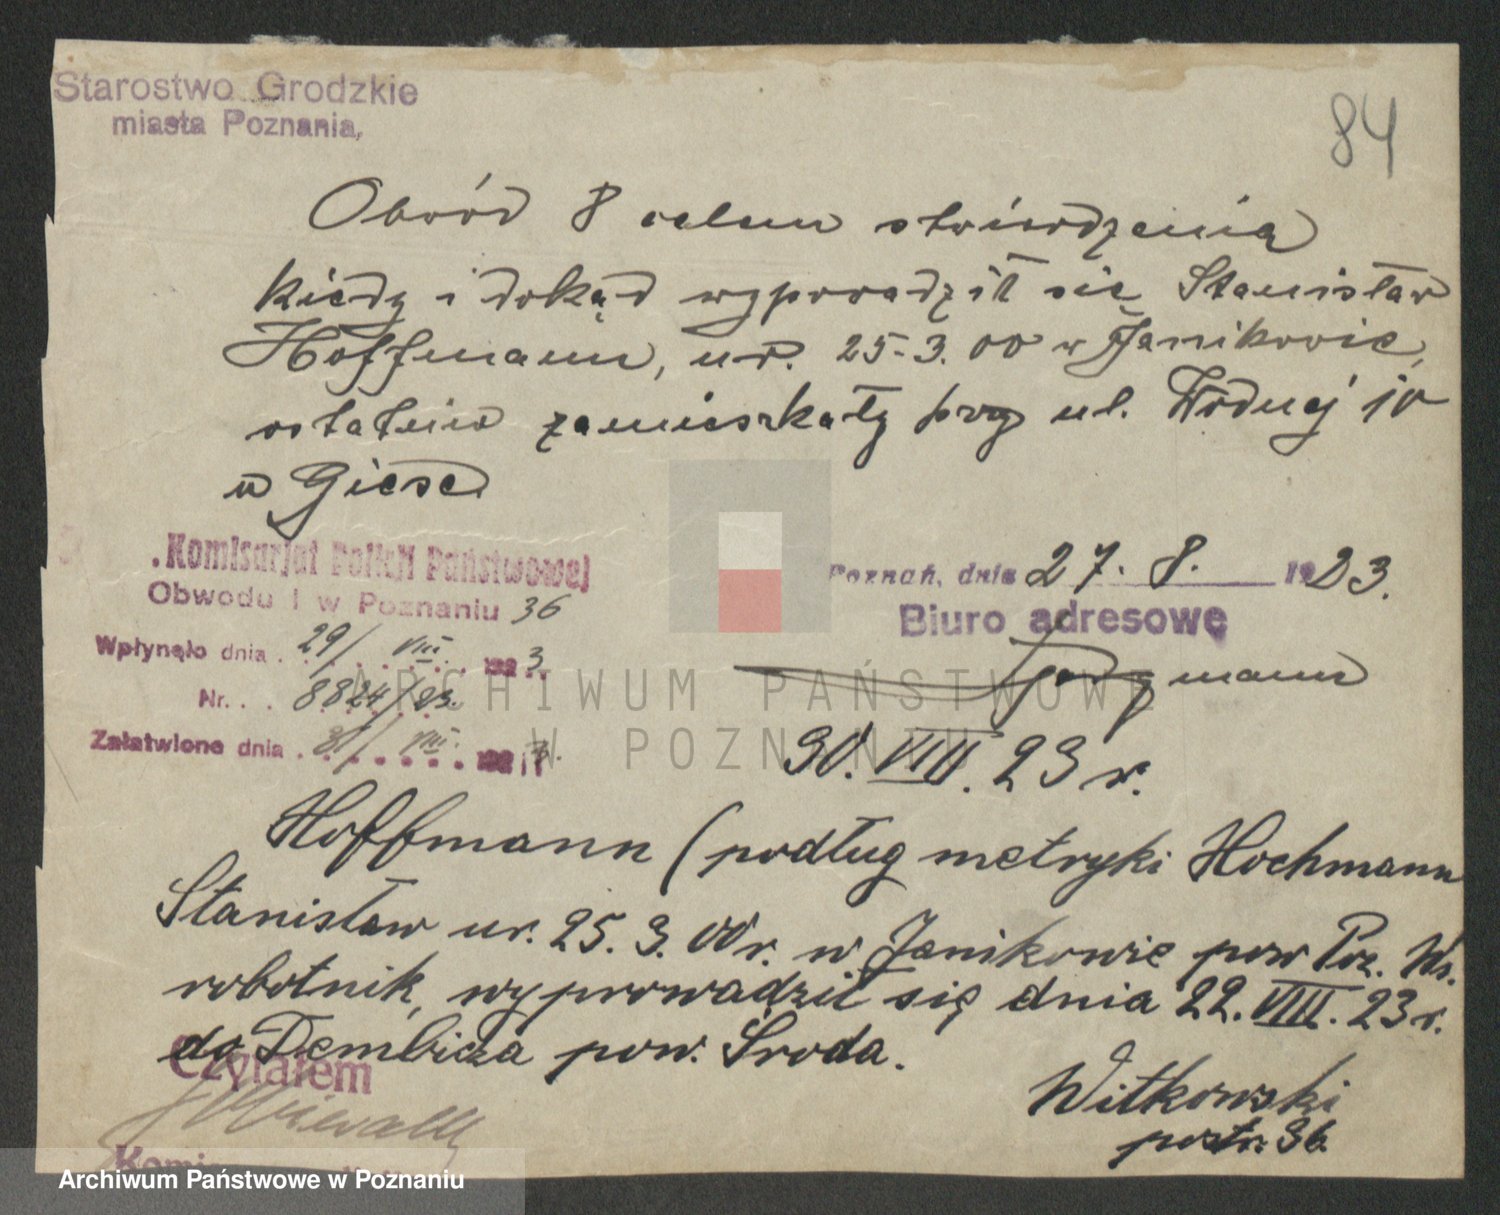 Starostwo Grodzkie
miasta Poznania,
84
Obwód 8 celem stwierdzenia
kiedy i dokąd wyprowadził się Stanisław
Hoffmann, ur. 25.3.00 w Janikowie,
ostatnio zamieszkały przy ul. Wodnej 10
u Giese
Komisarjat Policji Państwowej
Obwodu I w Poznaniu 36
Wpłynęło dnia 29/VIII 1923
Nr. 8824/23.
Załatwione dnia 31/VIII. 192
Poznań, dnia 27. 8. 1923.
Biuro adresowe
30. VIII. 23 r.
Hoffmann (podług metryki Hochmann
Stanisław ur. 25. 3. 00 r. w Janikowie pow Poz. Ws.
robotnik, wyprowadził się dnia 22. VIII. 23 r.
do Dembicza pow. Środa.
Czytałem
Witkowski
postr. 36.
ARCHIWUM PAŃSTWOWE
W POZNANIU
Archiwum Państwowe w Poznaniu